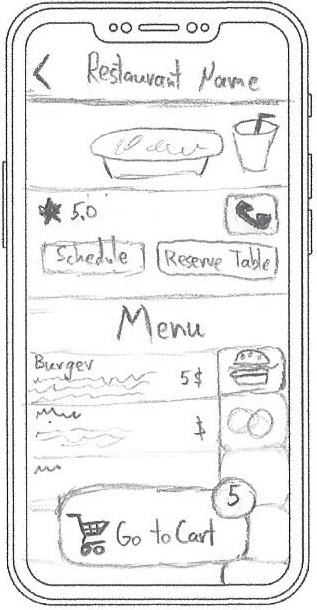 Restaurant Name
5.0
Schedule
Reserve Table
Menu
Burger
5$
$
5
Go to Cart